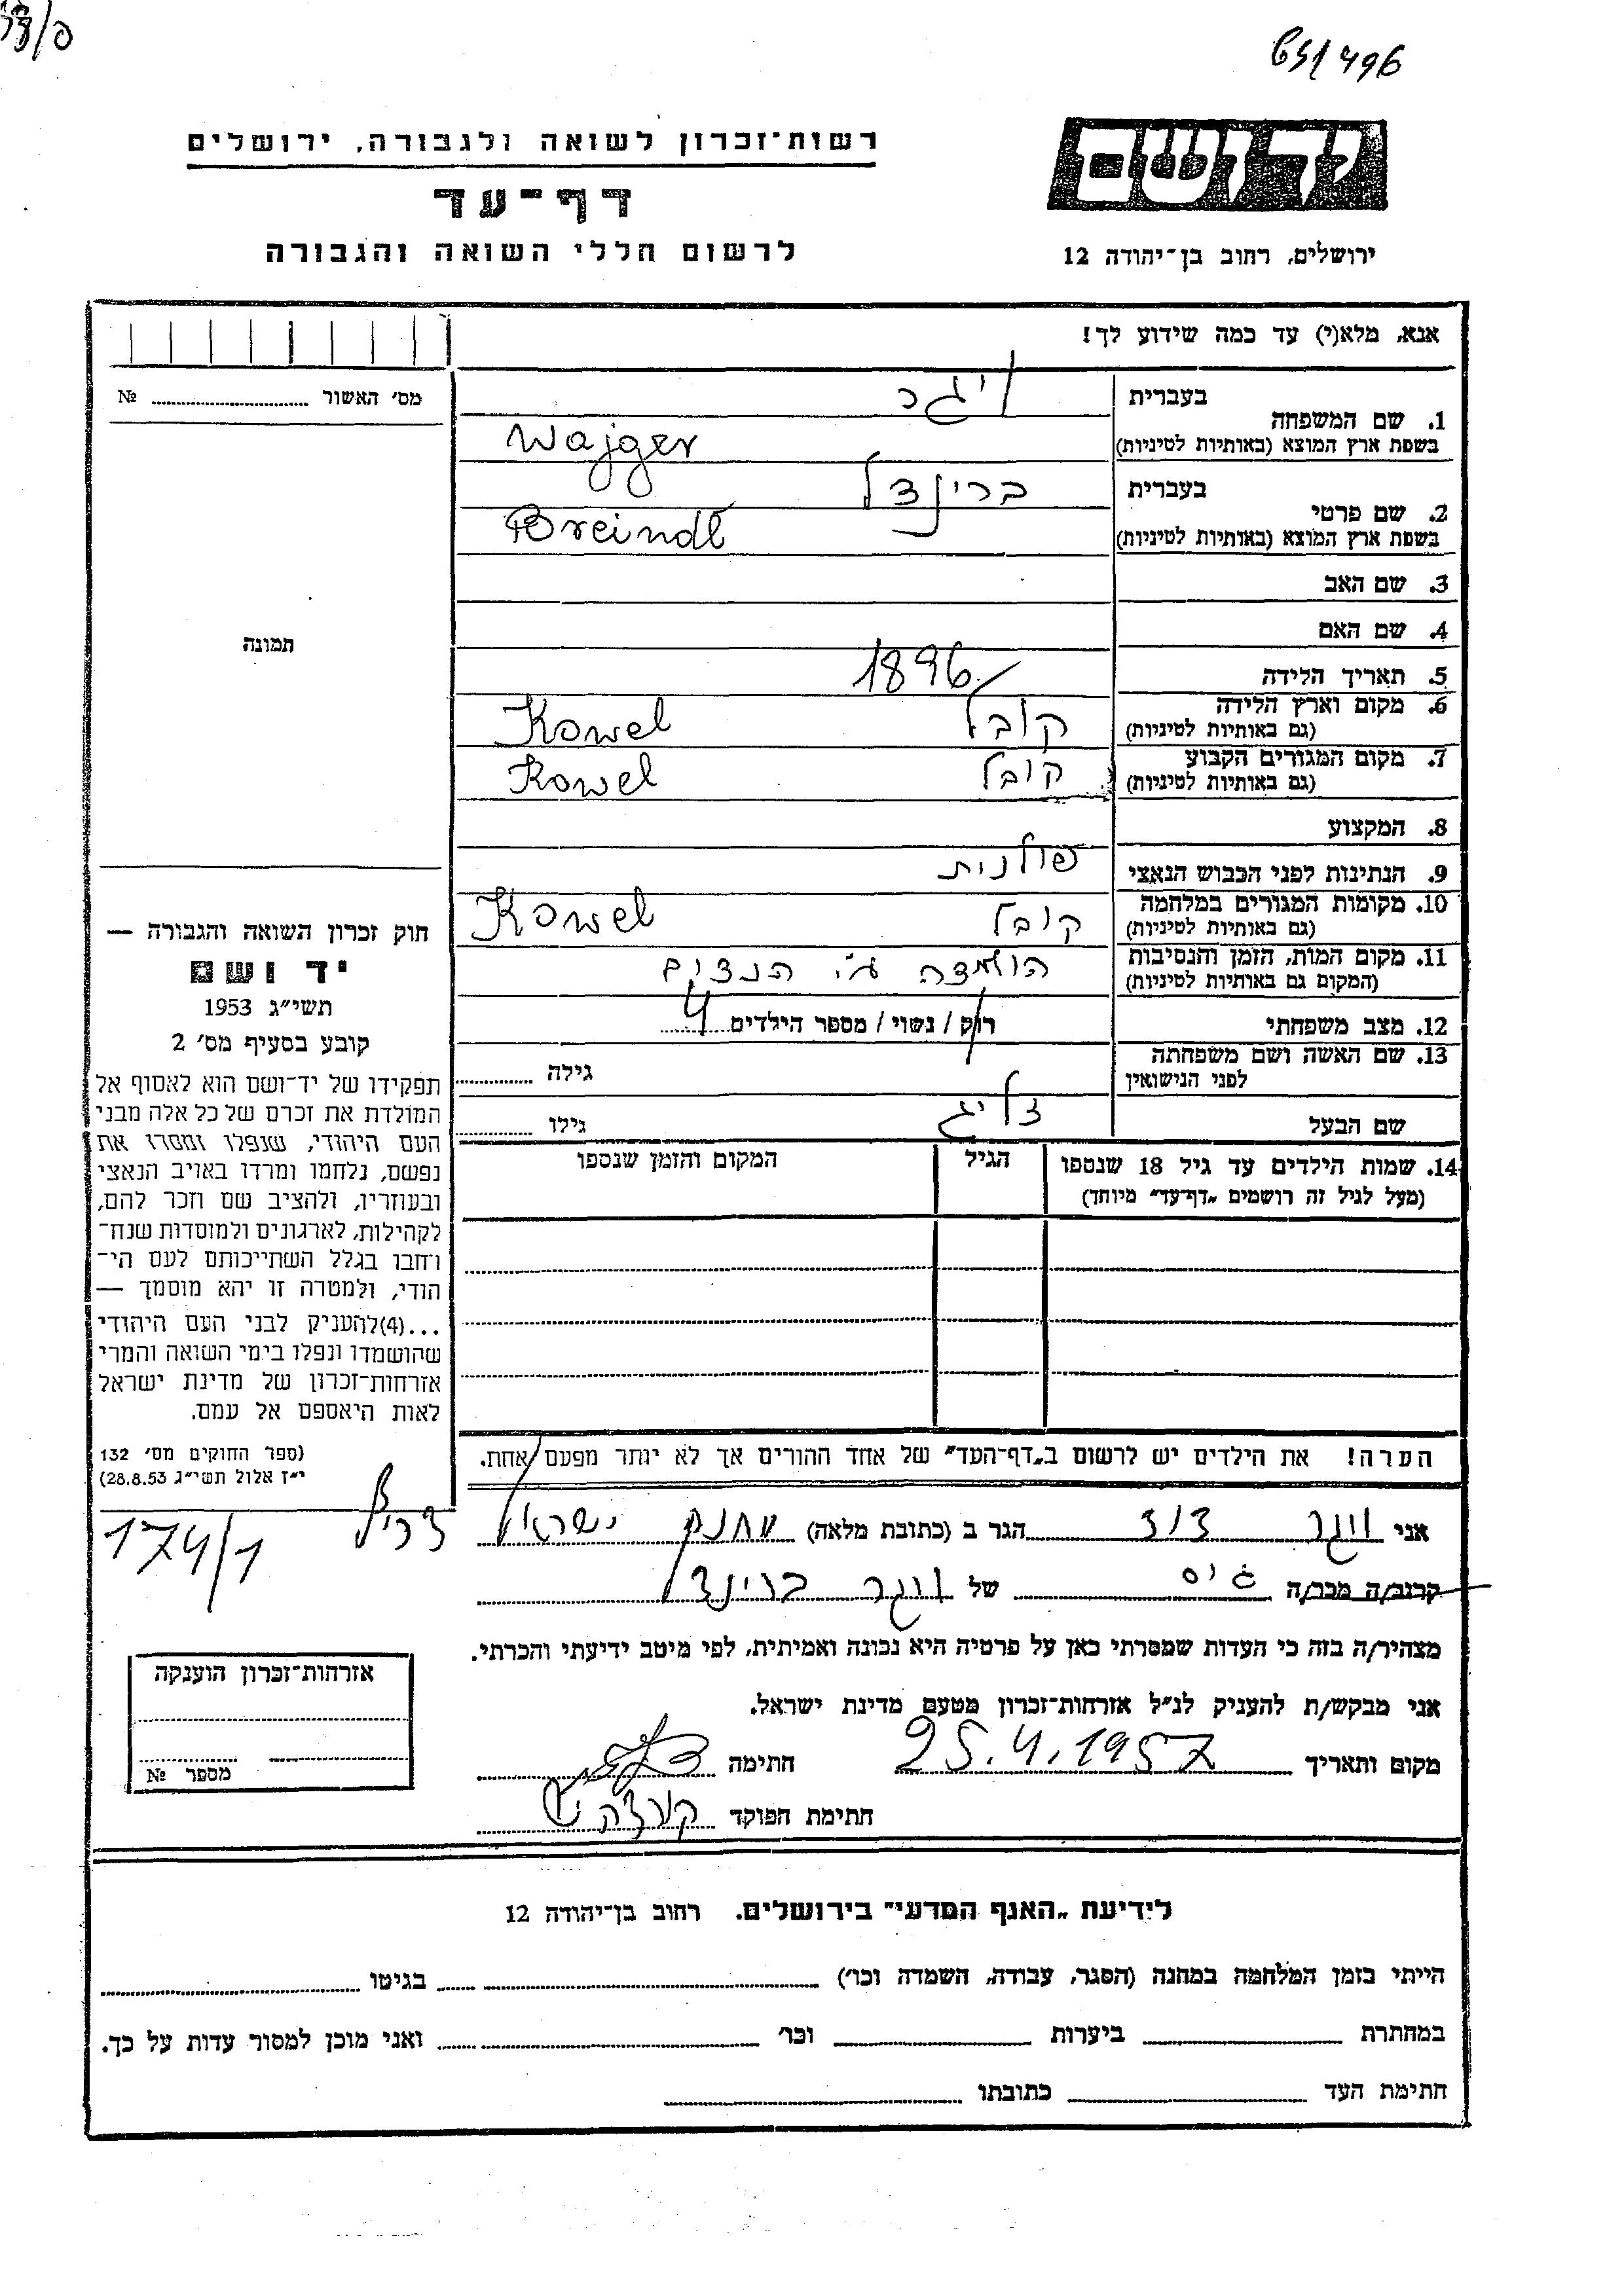 496
רשות־זכרון לשואה ולגבורה, ירושלים
דף־עד
לרשום חללי השואה והגבורה
יד ושם
ירושלים, רחוב בן־יהודה 12
אנא, מלא(י) עד כמה שידוע לך!
מס׳ האשור № ........
1. שם המשפחה
בעברית ויגר
בשפת ארץ המוצא (באותיות לטיניות) Wajger
2. שם פרטי
בעברית בריינדל
בשפת ארץ המוצא (באותיות לטיניות) Breindl
3. שם האב
4. שם האם
5. תאריך הלידה 1896
6. מקום וארץ הלידה קובל Kowel
(גם באותיות לטיניות)
7. מקום המגורים הקבוע קובל Kowel
(גם באותיות לטיניות)
8. המקצוע
9. הנתינות לפני הכבוש הנאצי פולנית
10. מקומות המגורים במלחמה קובל Kowel
(גם באותיות לטיניות)
11. מקום המות, הזמן והנסיבות הושמדה ע״י הנצים
(המקום גם באותיות לטיניות)
12. מצב משפחתי רוק / נשוי / מספר הילדים 4
13. שם האשה ושם משפחתה
לפני הנישואין גילה ........
שם הבעל זליג גילו ........
14. שמות הילדים עד גיל 18 שנספו הגיל המקום והזמן שנספו
(מעל לגיל זה רושמים „דף־עד״ מיוחד)
הערה! את הילדים יש לרשום ב„דף־העד״ של אחד ההורים אך לא יותר מפעם אחת.
תמונה
חוק זכרון השואה והגבורה —
יד ושם
תשי״ג 1953
קובע בסעיף מס׳ 2
תפקידו של יד־ושם הוא לאסוף אל
המולדת את זכרם של כל אלה מבני
העם היהודי, שנפלו ומסרו את
נפשם, נלחמו ומרדו באויב הנאצי
ובעוזריו, ולהציב שם וזכר להם,
לקהילות, לארגונים ולמוסדות שנח־
רחבו בגלל השתייכותם לעם הי־
הודי, ולמטרה זו יהא מוסמך —
...(4)להעניק לבני העם היהודי
שהושמדו ונפלו בימי השואה והמרי
אזרחות־זכרון של מדינת ישראל
לאות היאספם אל עמם.
(ספר החוקים מס׳ 132
י״ז אלול תשי״ג 28.8.53)
174/1
אני ויגר דוד הגר ב (כתובת מלאה) עמנק ישראל
קרוב/ה מכר/ה גיס של ויגר בריינדל
מצהיר/ה בזה כי העדות שמסרתי כאן על פרטיה היא נכונה ואמיתית, לפי מיטב ידיעתי והכרתי.
אני מבקש/ת להעניק לנ״ל אזרחות־זכרון מטעם מדינת ישראל.
מקום ותאריך 25.4.1957 חתימה
חתימת הפוקד
אזרחות־זכרון הוענקה
מספר №
לידיעת „האגף המדעי״ בירושלים. רחוב בן־יהודה 12
הייתי בזמן המלחמה במחנה (הסגר, עבודה, השמדה וכו׳) ........ בגיטו ........
במחתרת ........ ביערות ........ וכו׳ ........ ואני מוכן למסור עדות על כך.
חתימת העד ........ כתובתו ........